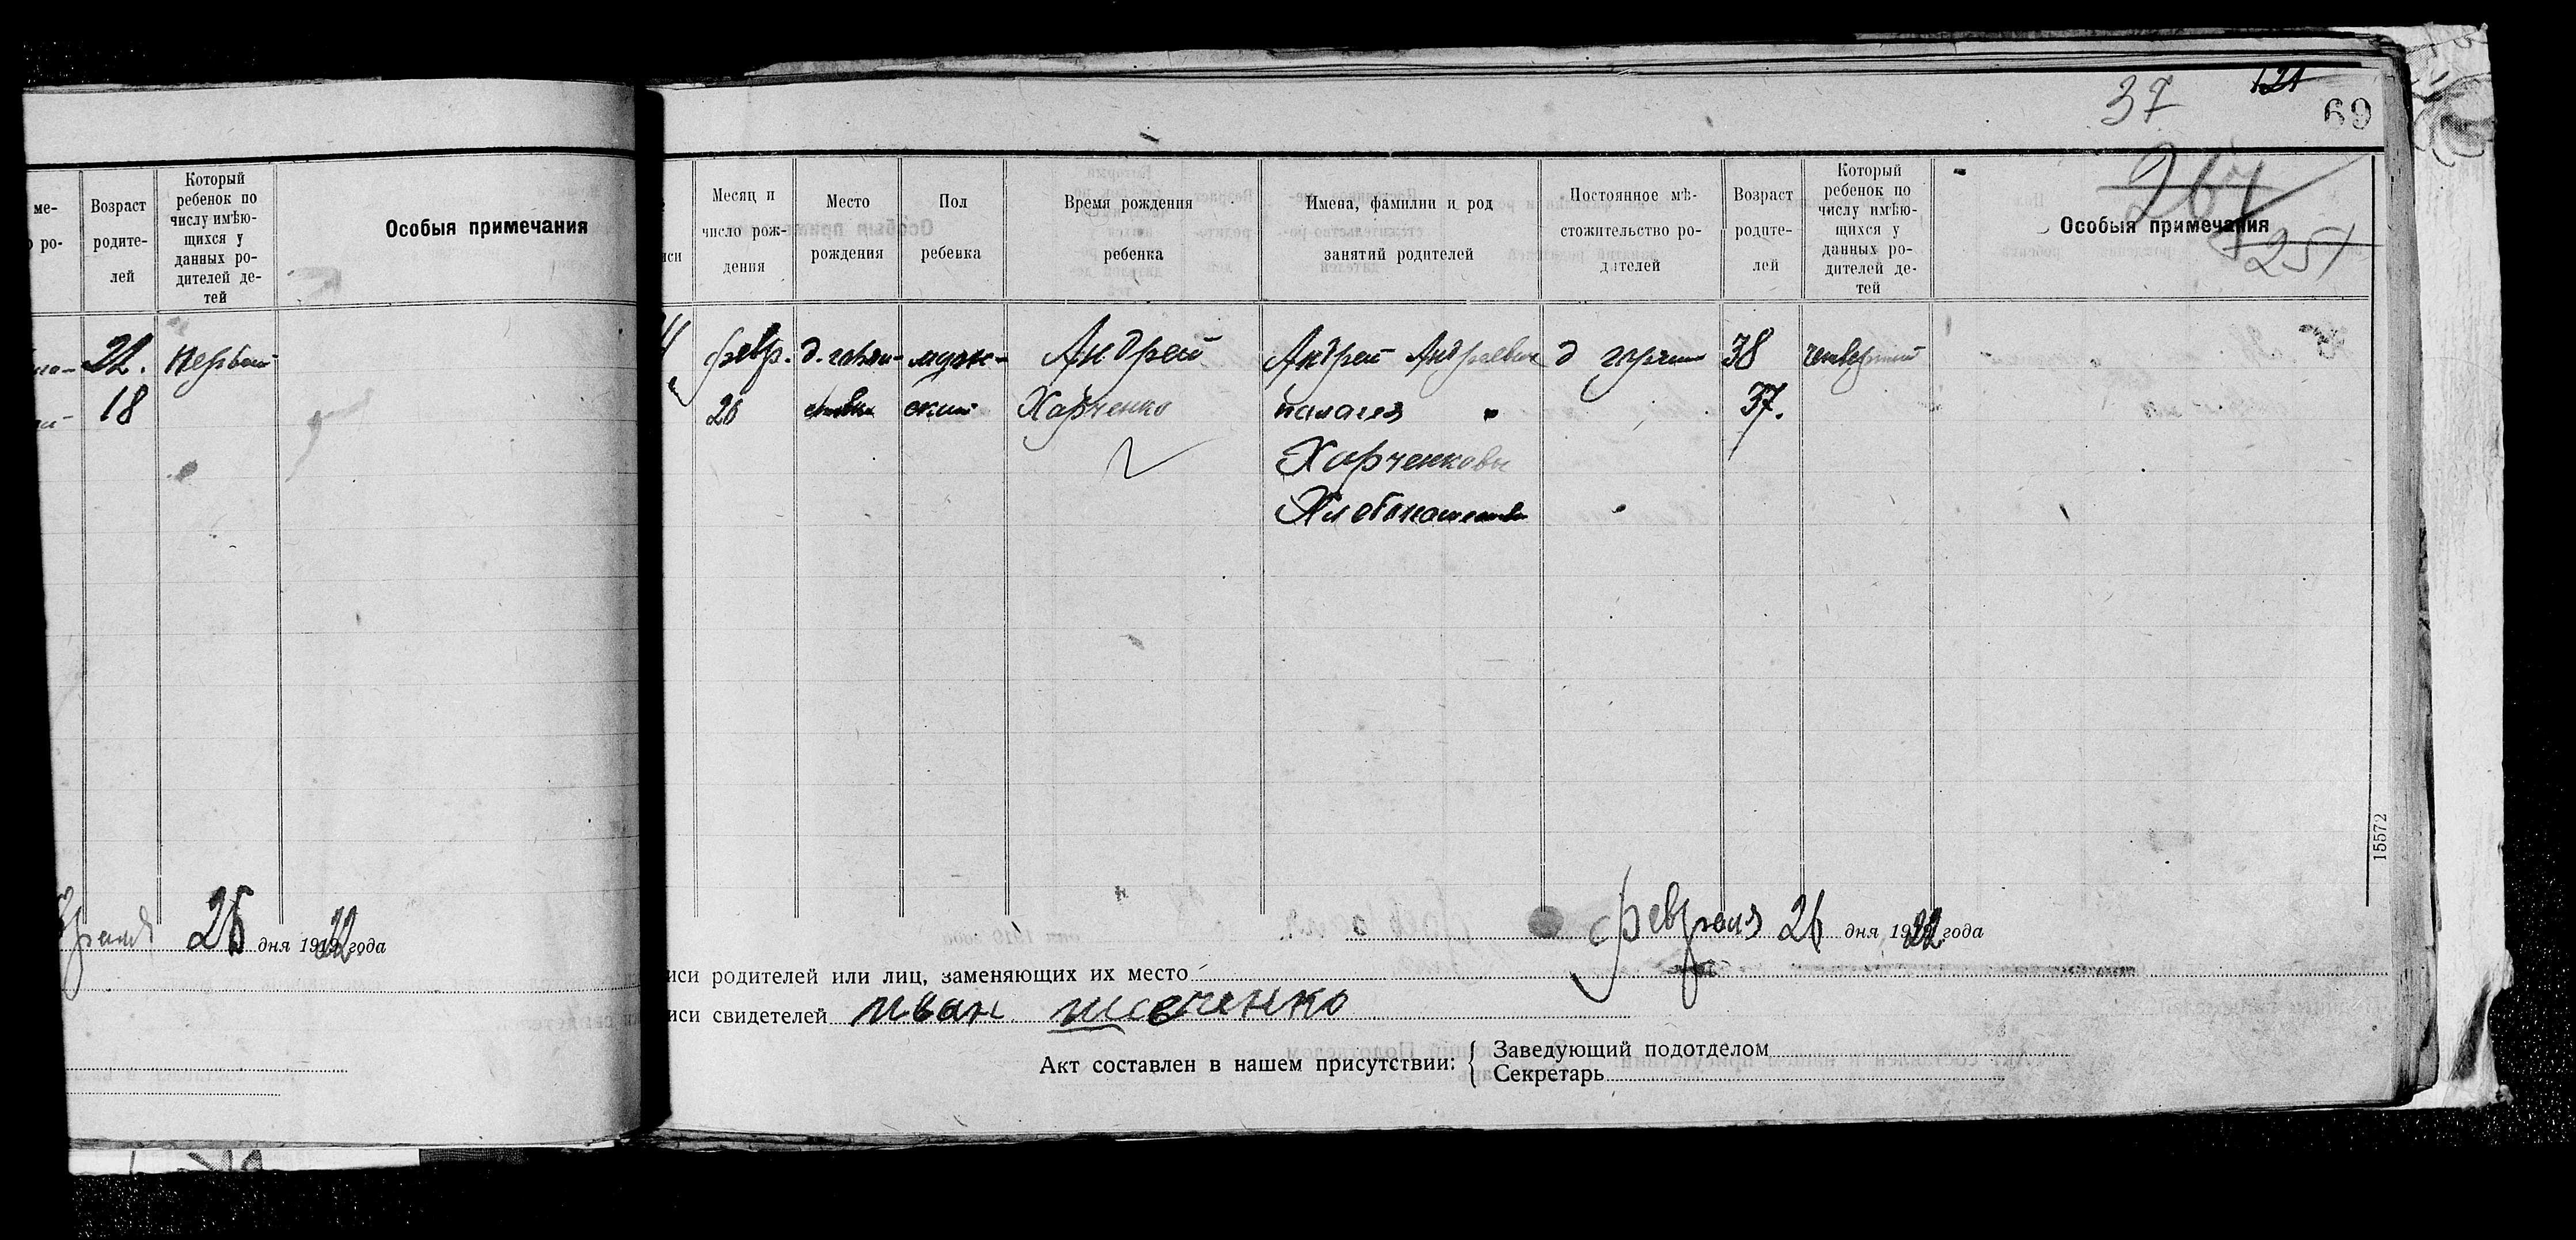 121
37
69
264
251
ме-
ро-
Возраст
родите-
лей
Который
ребенок по
числу имѣю-
щихся у
данных ро-
дителей де-
тей
Особыя примечания
22. первый
18
26 дня 1922 года
иси
Месяц и
число рож-
дения
Место
рождения
Пол
ребенка
Время рождения
ребенка
Имена, фамилии и род
занятий родителей
Постоянное мѣ-
стожительство ро-
дителей
Возраст
родите-
лей
Который
ребенок по
числу имѣю-
щихся у
данных ро-
дителей де-
тей
Особыя примечания
февр. д. муж- Андрей Андрей Андреевич д 38 четвертый
26 ский Харченко палагея 37.
Харченковы
15572
февраля 26 дня 1922 года
иси родителей или лиц, заменяющих их место
иси свидетелей иван
Акт составлен в нашем присутствии:
Заведующий подотделом
Секретарь